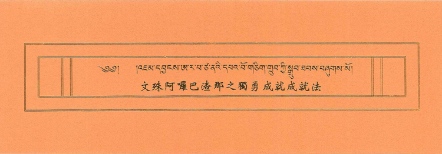 ༄༅།  །འཇམ་དབྱངས་ཨ་ར་པ་ཙ་ནའི་དཔའ་བོ་གཅིག་གྲུབ་ཀྱི་སྒྲུབ་ཐབས་བཞུགས་སོ།
文殊阿囉巴渣那之獨勇成就成就法